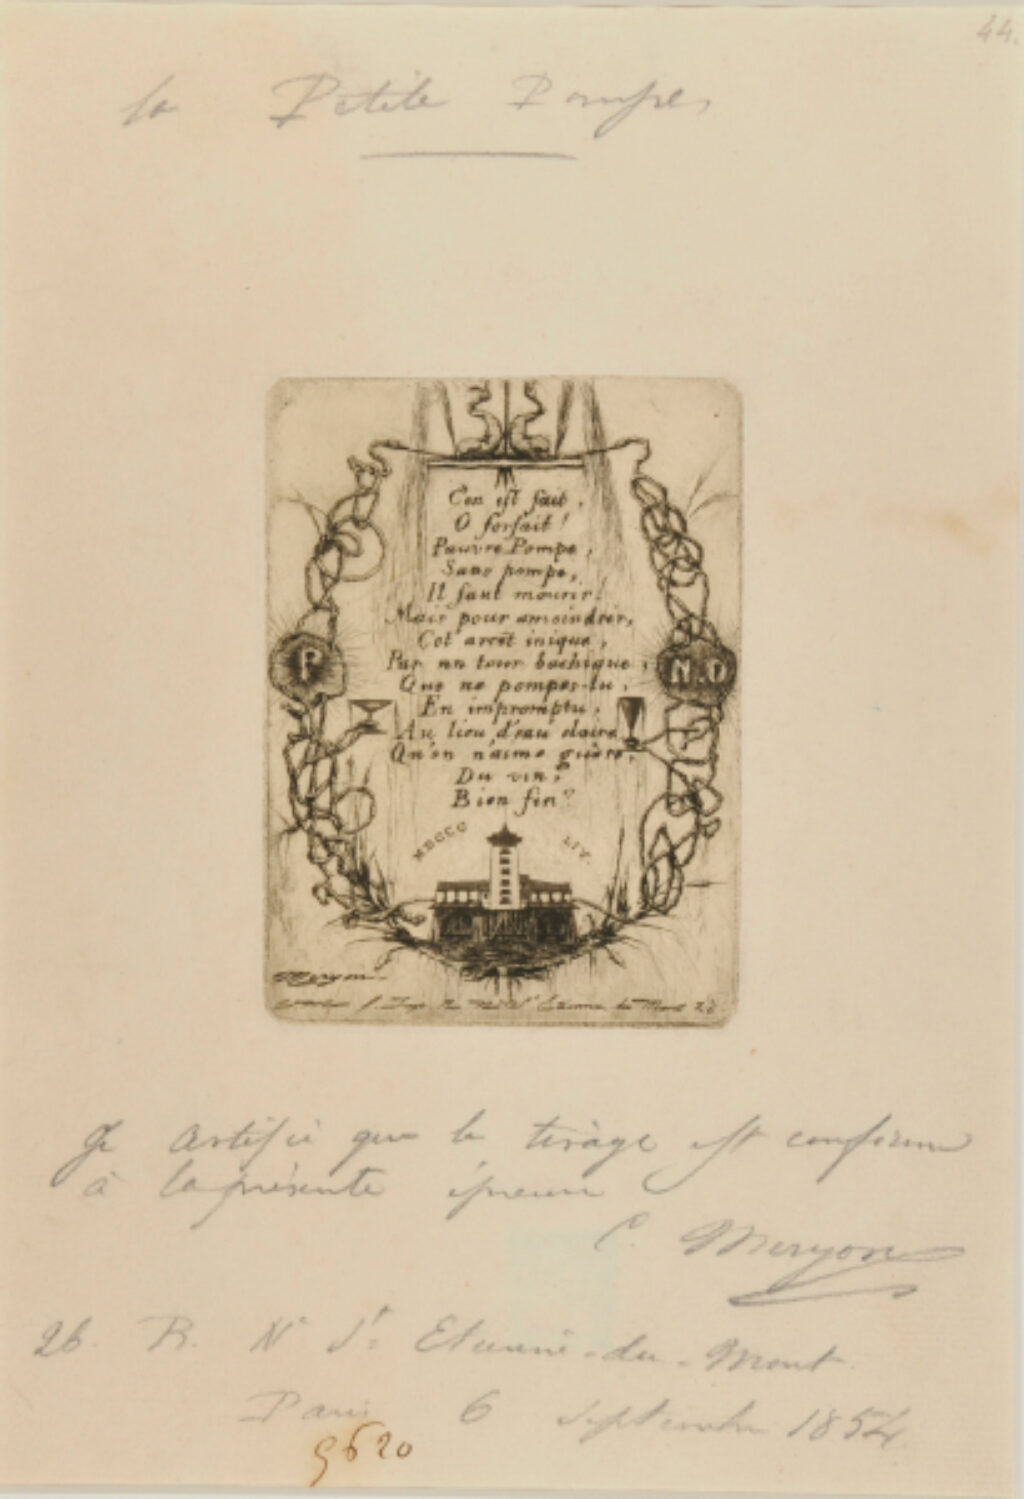 44.
la Petite Pompe,
C'en est fait,
O forfait!
Pauvre Pompe,
Sans pompe,
Il faut mourir!
Mais pour amoindrir,
Cet arrêt inique,
Par un tour bachique,
Que ne pompes-tu,
En impromptu,
Au lieu d'eau claire
Qu'on n'aime guère,
Du vin,
Bien fin?
P
N.D
MDCCC LIV.
Meryon
Imp. R. Nve St Etienne du Mont 26
Je certifie que le tirage est conforme
à la présente épreuve
C. Meryon
26. R. Ne St. Etienne-du-Mont.
Paris 6 septembre 1854.
9620